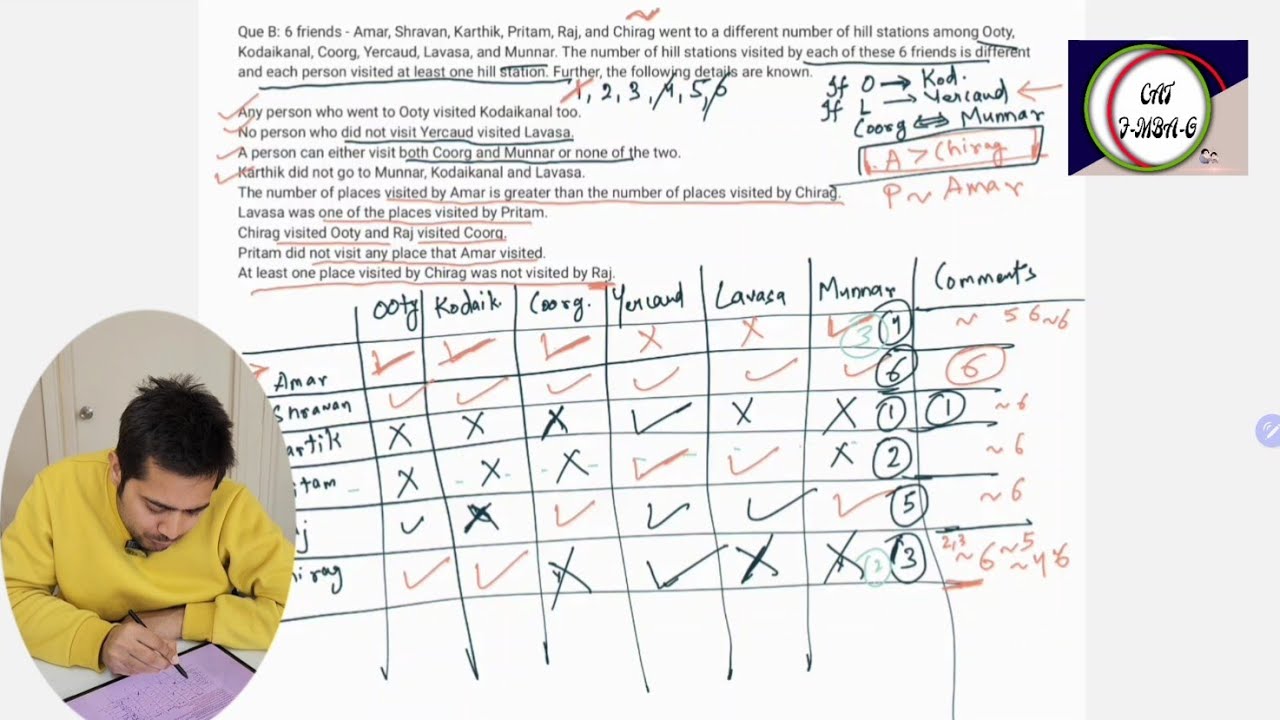 Que B: 6 friends - Amar, Shravan, Karthik, Pritam, Raj, and Chirag went to a different number of hill stations among Ooty,
Kodaikanal, Coorg, Yercaud, Lavasa, and Munnar. The number of hill stations visited by each of these 6 friends is different
and each person visited at least one hill station. Further, the following details are known.
1, 2, 3, 4, 5, 6
If O → Kod.
If L → Yercaud
Coorg ⇔ Munnar
A > Chirag
P ~ Amar
CAT
F-MBA-G
Any person who went to Ooty visited Kodaikanal too.
No person who did not visit Yercaud visited Lavasa.
A person can either visit both Coorg and Munnar or none of the two.
Karthik did not go to Munnar, Kodaikanal and Lavasa.
The number of places visited by Amar is greater than the number of places visited by Chirag.
Lavasa was one of the places visited by Pritam.
Chirag visited Ooty and Raj visited Coorg.
Pritam did not visit any place that Amar visited.
At least one place visited by Chirag was not visited by Raj.
Ooty Kodaik. Coorg. Yercaud Lavasa Munnar Comments
Amar ✓ ✓ ✓ X X ✓ 3 4 ~ 5 6 ~6
Shravan ✓ ✓ ✓ ✓ ✓ ✓ 6 6
artik X X X ✓ X X 1 1 ~6
itam X X X ✓ ✓ X 2 ~6
j ✓ X ✓ ✓ ✓ ✓ 5 ~6
hirag ✓ ✓ X ✓ X X 2 3 2,3 ~6 ~5 ~4